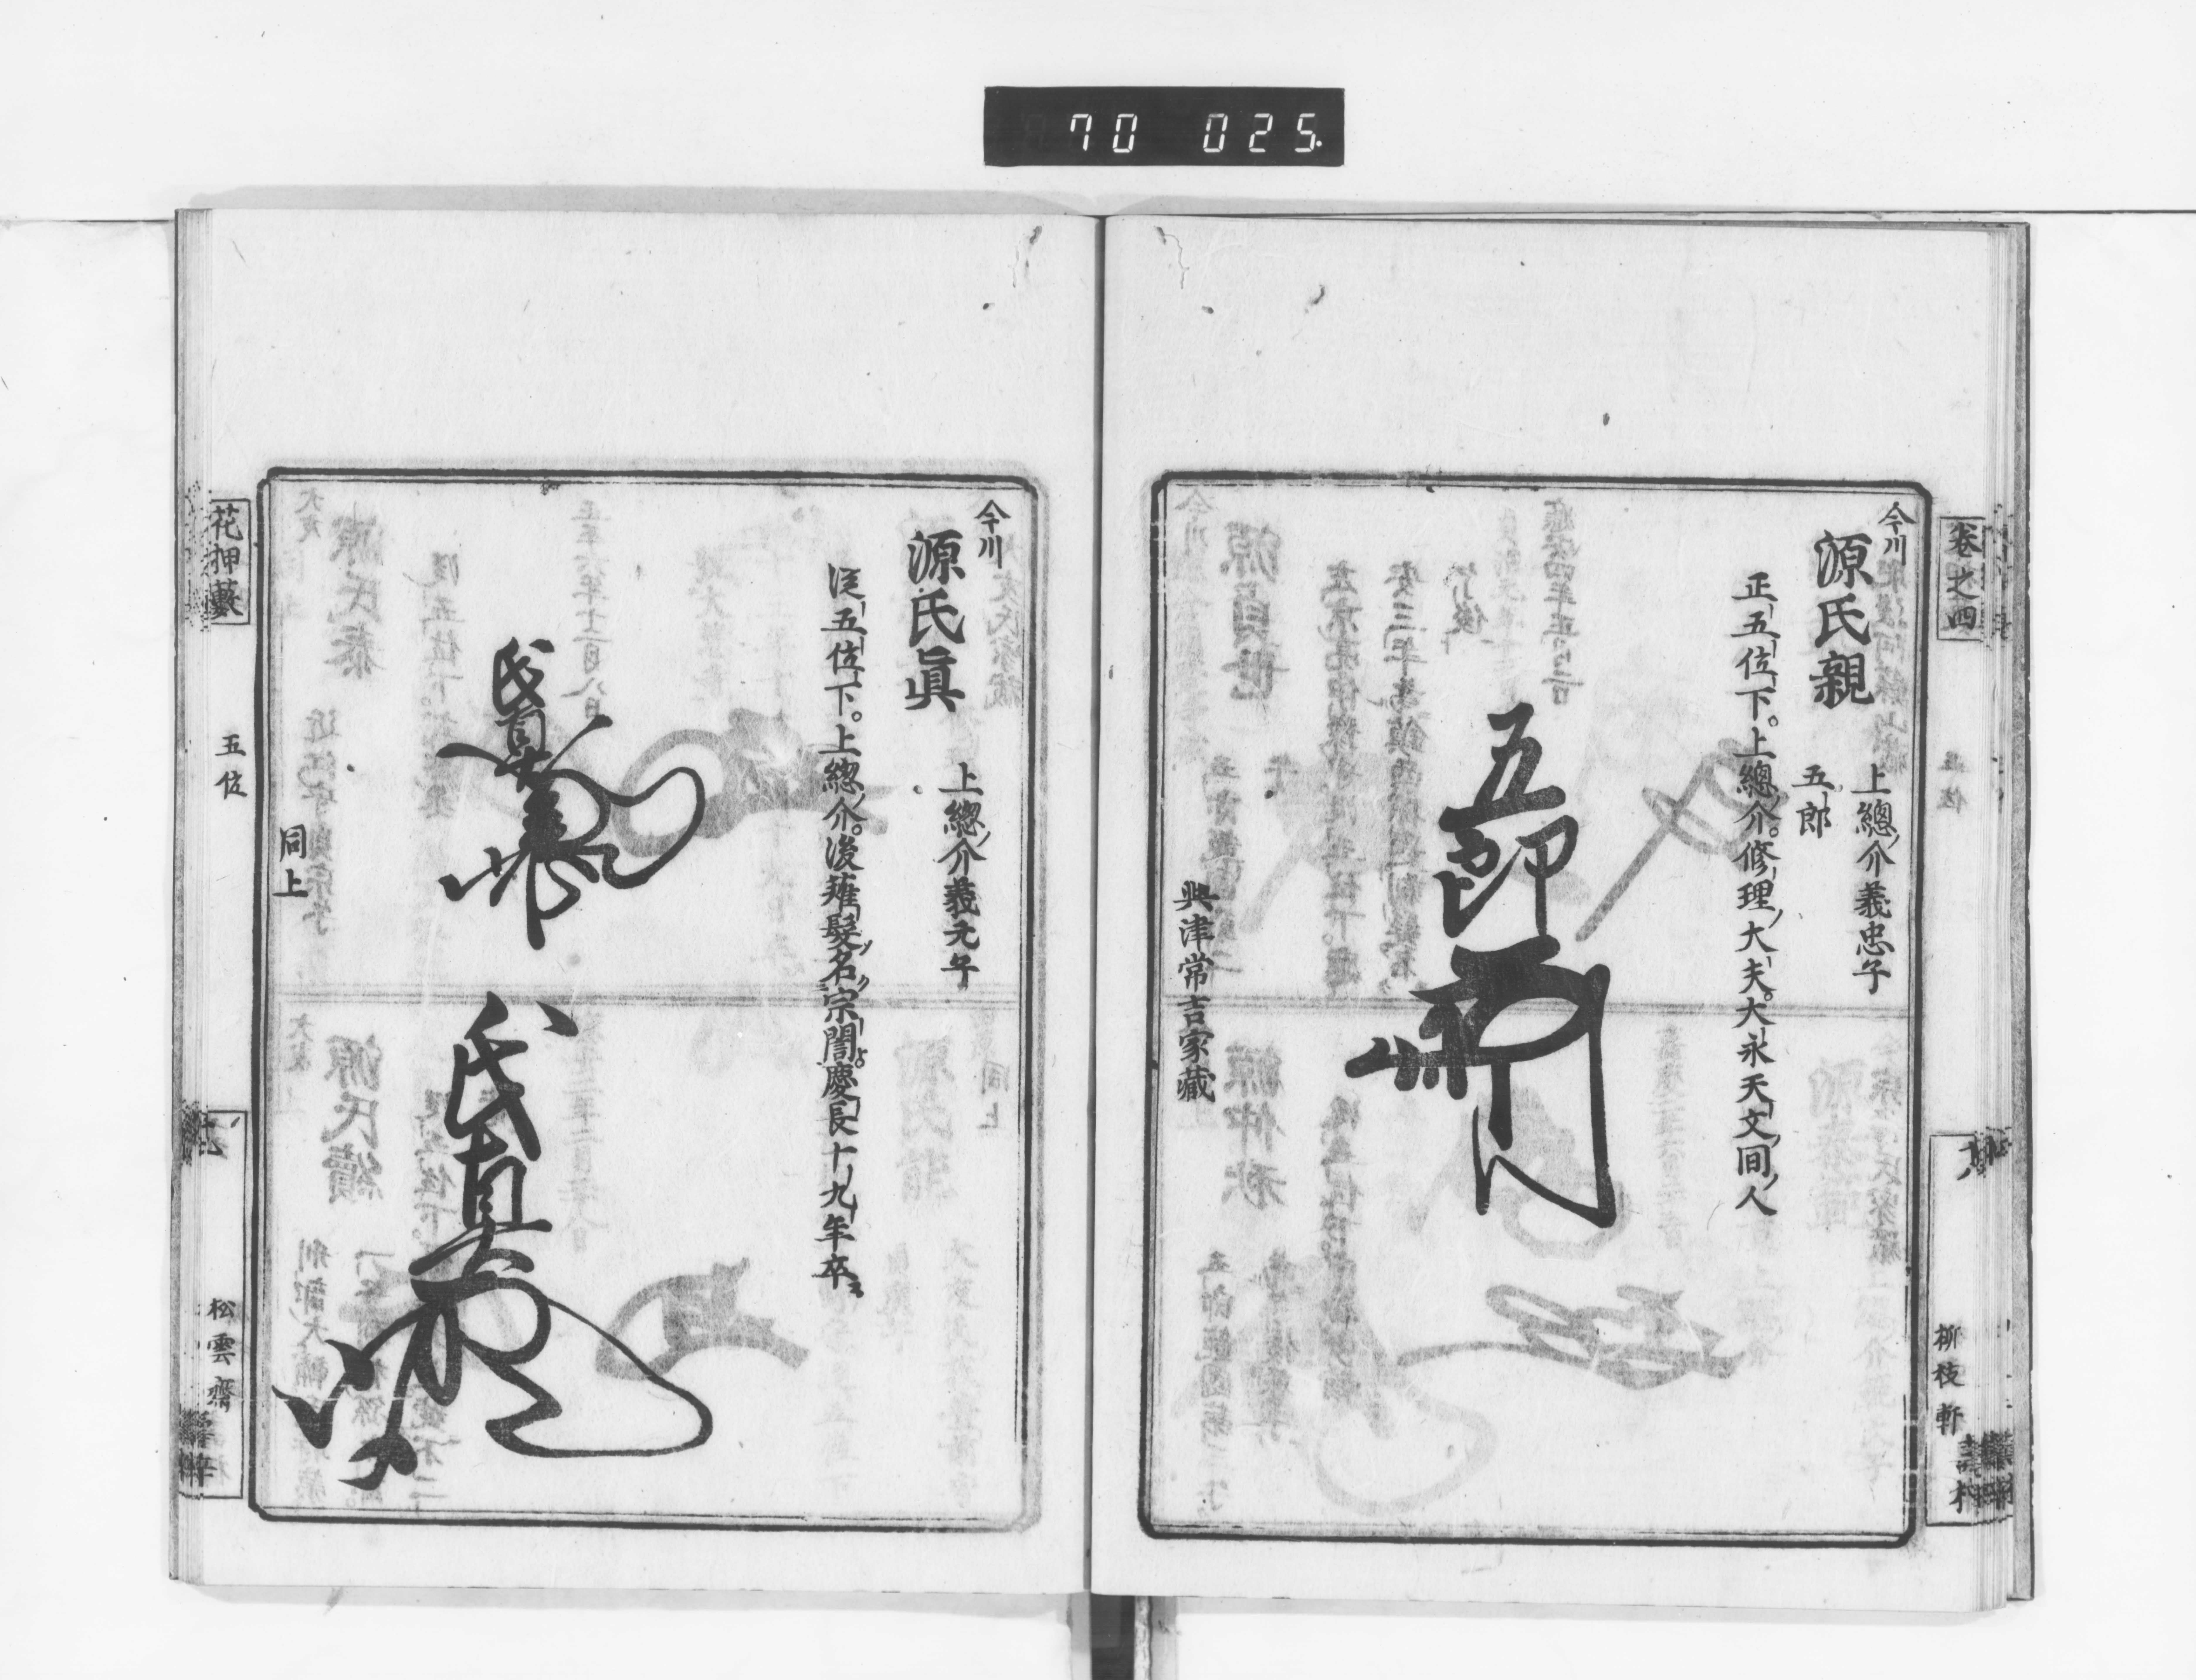 70 025
卷之四
柳枝軒
今川
源氏親
上總介義忠子
五郎
正五位下。上總介。修理大夫。大永天文間ノ人
五郎
興津常吉家藏
今川
源氏眞
上總介義元子
從五位下。上總介。後薙髮名宗誾。慶長十九年卒ス
氏真
氏真
同上
花押藪
五位
松雲齋